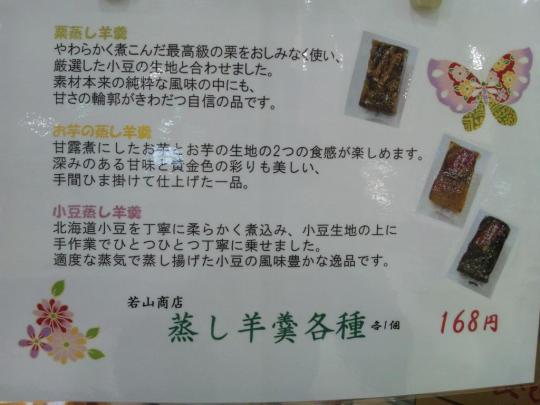 栗蒸し羊羹
やわらかく煮こんだ最高級の栗をおしみなく使い、
厳選した小豆の生地と合わせました。
素材本来の純粋な風味の中にも、
甘さの輪郭がきわだつ自信の品です。
お芋の蒸し羊羹
甘露煮にしたお芋とお芋の生地の2つの食感が楽しめます。
深みのある甘味と黄金色の彩りも美しい、
手間ひま掛けて仕上げた一品。
小豆蒸し羊羹
北海道小豆を丁寧に柔らかく煮込み、小豆生地の上に
手作業でひとつひとつ丁寧に乗せました。
適度な蒸気で蒸し揚げた小豆の風味豊かな逸品です。
若山商店
蒸し羊羹各種 各1個 168円